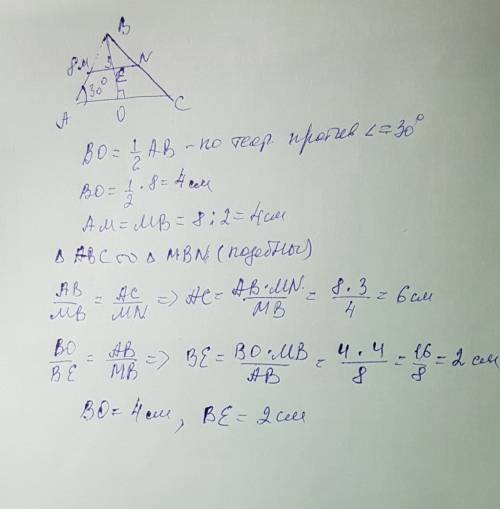 B
8 M 3 N
E
30°
A O C
BO = 1/2 AB - по теор. против ∠ = 30°
BO = 1/2 · 8 = 4 см
AM = MB = 8 : 2 = 4 см
Δ ABC ∞ Δ MBN (подобны)
AB/MB = AC/MN => AC = AB·MN/MB = 8·3/4 = 6 см
BO/BE = AB/MB => BE = BO·MB/AB = 4·4/8 = 16/8 = 2 см
BO = 4 см, BE = 2 см